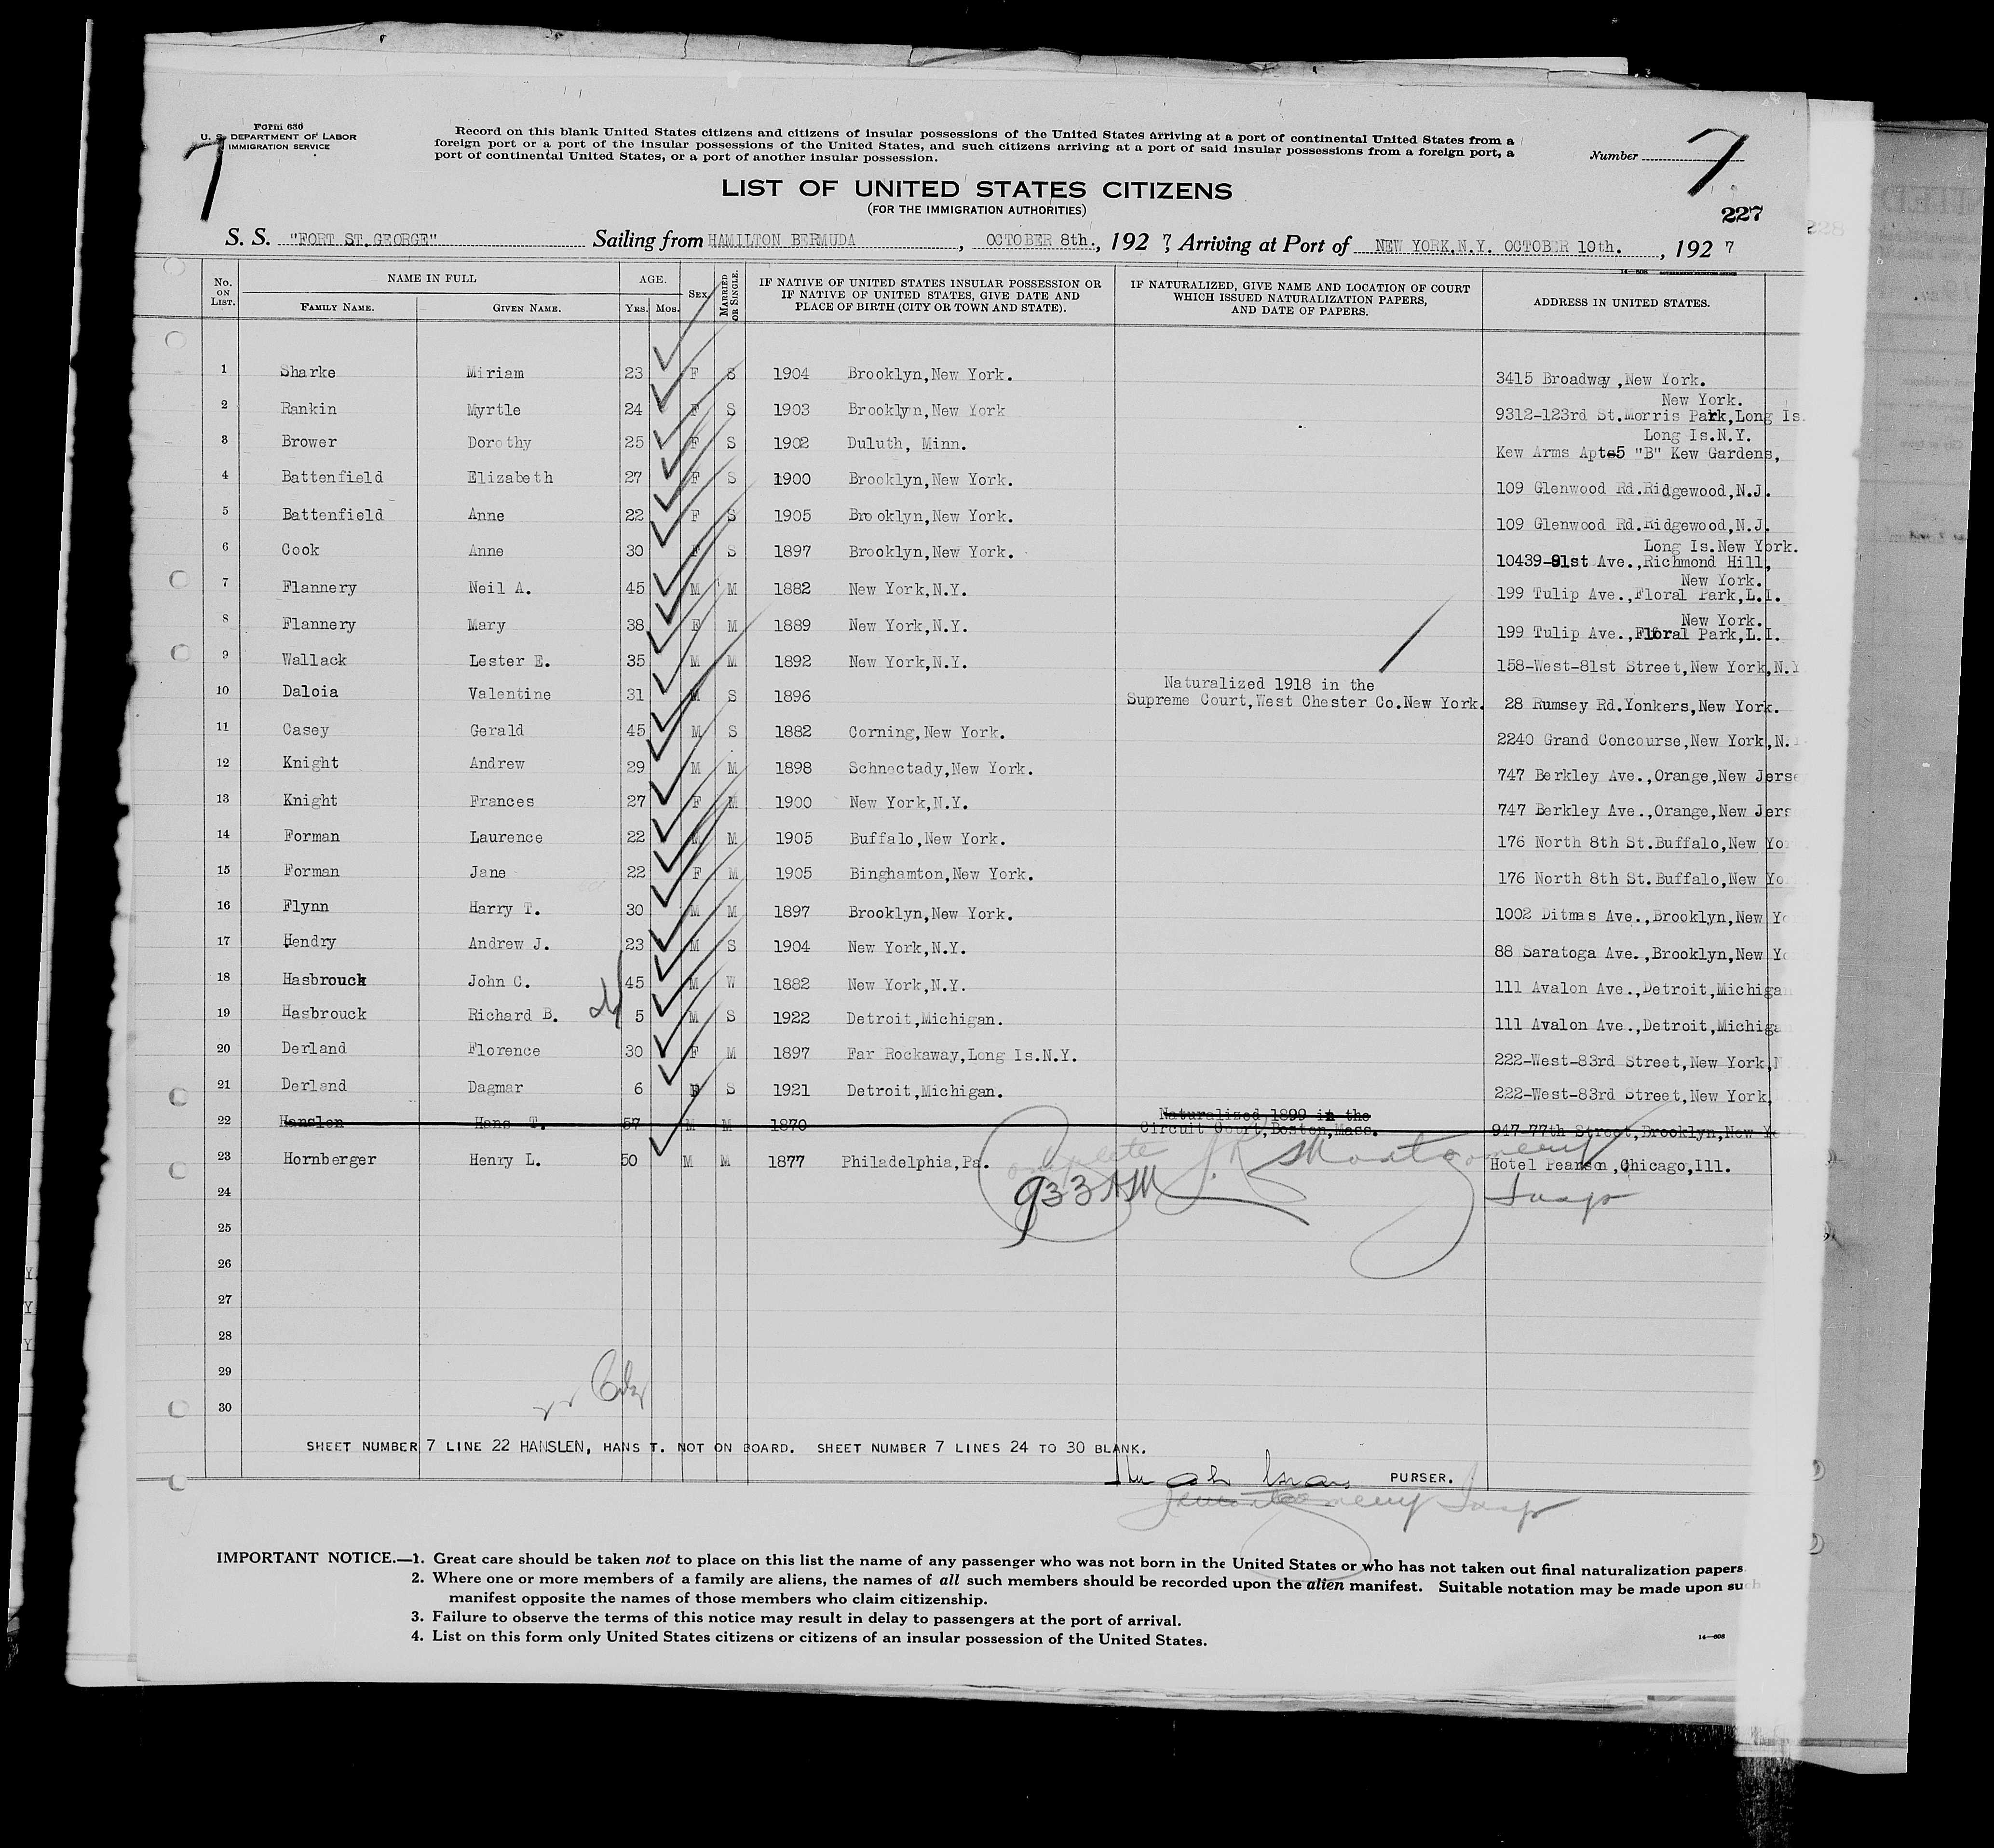 Form 630
U. S. DEPARTMENT OF LABOR
IMMIGRATION SERVICE
7
Record on this blank United States citizens and citizens of insular possessions of the United States arriving at a port of continental United States from a
foreign port or a port of the insular possessions of the United States, and such citizens arriving at a port of said insular possessions from a foreign port, a
port of continental United States, or a port of another insular possession.
Number 7
LIST OF UNITED STATES CITIZENS
(FOR THE IMMIGRATION AUTHORITIES)
227
S. S. "FORT ST.GEORGE" Sailing from HAMILTON BERMUDA, OCTOBER 8th., 1927, Arriving at Port of NEW YORK.N.Y. OCTOBER 10th., 1927
14—608
No. ON LIST. NAME IN FULL FAMILY NAME. GIVEN NAME. AGE. YRS. MOS. SEX. MARRIED OR SINGLE. IF NATIVE OF UNITED STATES INSULAR POSSESSION OR IF NATIVE OF UNITED STATES, GIVE DATE AND PLACE OF BIRTH (CITY OR TOWN AND STATE). IF NATURALIZED, GIVE NAME AND LOCATION OF COURT WHICH ISSUED NATURALIZATION PAPERS, AND DATE OF PAPERS. ADDRESS IN UNITED STATES.
1 Sharke Miriam 23 F S 1904 Brooklyn,New York. 3415 Broadway,New York.
New York.
2 Rankin Myrtle 24 F S 1903 Brooklyn,New York 9312-123rd St.Morris Park,Long Is.
Long Is.N.Y.
3 Brower Dorothy 25 F S 1902 Duluth, Minn. Kew Arms Apts5 "B" Kew Gardens,
4 Battenfield Elizabeth 27 F S 1900 Brooklyn,New York. 109 Glenwood Rd.Ridgewood,N.J.
5 Battenfield Anne 22 F S 1905 Brooklyn,New York. 109 Glenwood Rd.Ridgewood,N.J.
Long Is.New York.
6 Cook Anne 30 F S 1897 Brooklyn,New York. 10439-91st Ave.,Richmond Hill,
New York.
7 Flannery Neil A. 45 M M 1882 New York,N.Y. 199 Tulip Ave.,Floral Park,L.I.
New York.
8 Flannery Mary 38 F M 1889 New York,N.Y. 199 Tulip Ave.,Floral Park,L.I.
9 Wallack Lester E. 35 M M 1892 New York,N.Y. 158-West-81st Street,New York,N.Y
Naturalized 1918 in the
10 Daloia Valentine 31 M S 1896 Supreme Court,West Chester Co.New York. 28 Rumsey Rd.Yonkers,New York.
11 Casey Gerald 45 M S 1882 Corning,New York. 2240 Grand Concourse,New York,N.
12 Knight Andrew 29 M M 1898 Schnectady,New York. 747 Berkley Ave.,Orange,New Jerse
13 Knight Frances 27 F M 1900 New York,N.Y. 747 Berkley Ave.,Orange,New Jers
14 Forman Laurence 22 M M 1905 Buffalo,New York. 176 North 8th St.Buffalo,New Yo
15 Forman Jane 22 F M 1905 Binghamton,New York. 176 North 8th St.Buffalo,New Yo
16 Flynn Harry T. 30 M M 1897 Brooklyn,New York. 1002 Ditmas Ave.,Brooklyn,New Yo
17 Hendry Andrew J. 23 M S 1904 New York,N.Y. 88 Saratoga Ave.,Brooklyn,New Yo
18 Hasbrouck John C. 45 M W 1882 New York,N.Y. 111 Avalon Ave.,Detroit,Michigan
19 Hasbrouck Richard B. 5 M S 1922 Detroit,Michigan. 111 Avalon Ave.,Detroit,Michiga
20 Derland Florence 30 F M 1897 Far Rockaway,Long Is.N.Y. 222-West-83rd Street,New York,N
21 Derland Dagmar 6 F S 1921 Detroit,Michigan. 222-West-83rd Street,New York,
Naturalized 1899 in the
22 Hanslen Hans T. 57 M M 1870 Circuit Court,Boston,Mass. 947-77th Street,Brooklyn,New Yo
23 Hornberger Henry L. 50 M M 1877 Philadelphia,Pa. Hotel Pearson,Chicago,Ill.
Complete J.R. Montgomery
24 933 AM Insp
25
26
27
28
29
30
SHEET NUMBER 7 LINE 22 HANSLEN, HANS T. NOT ON BOARD. SHEET NUMBER 7 LINES 24 TO 30 BLANK.
PURSER.
Montgomery Insp
IMPORTANT NOTICE.—1. Great care should be taken not to place on this list the name of any passenger who was not born in the United States or who has not taken out final naturalization papers
2. Where one or more members of a family are aliens, the names of all such members should be recorded upon the alien manifest. Suitable notation may be made upon such
manifest opposite the names of those members who claim citizenship.
3. Failure to observe the terms of this notice may result in delay to passengers at the port of arrival.
4. List on this form only United States citizens or citizens of an insular possession of the United States.
14—608